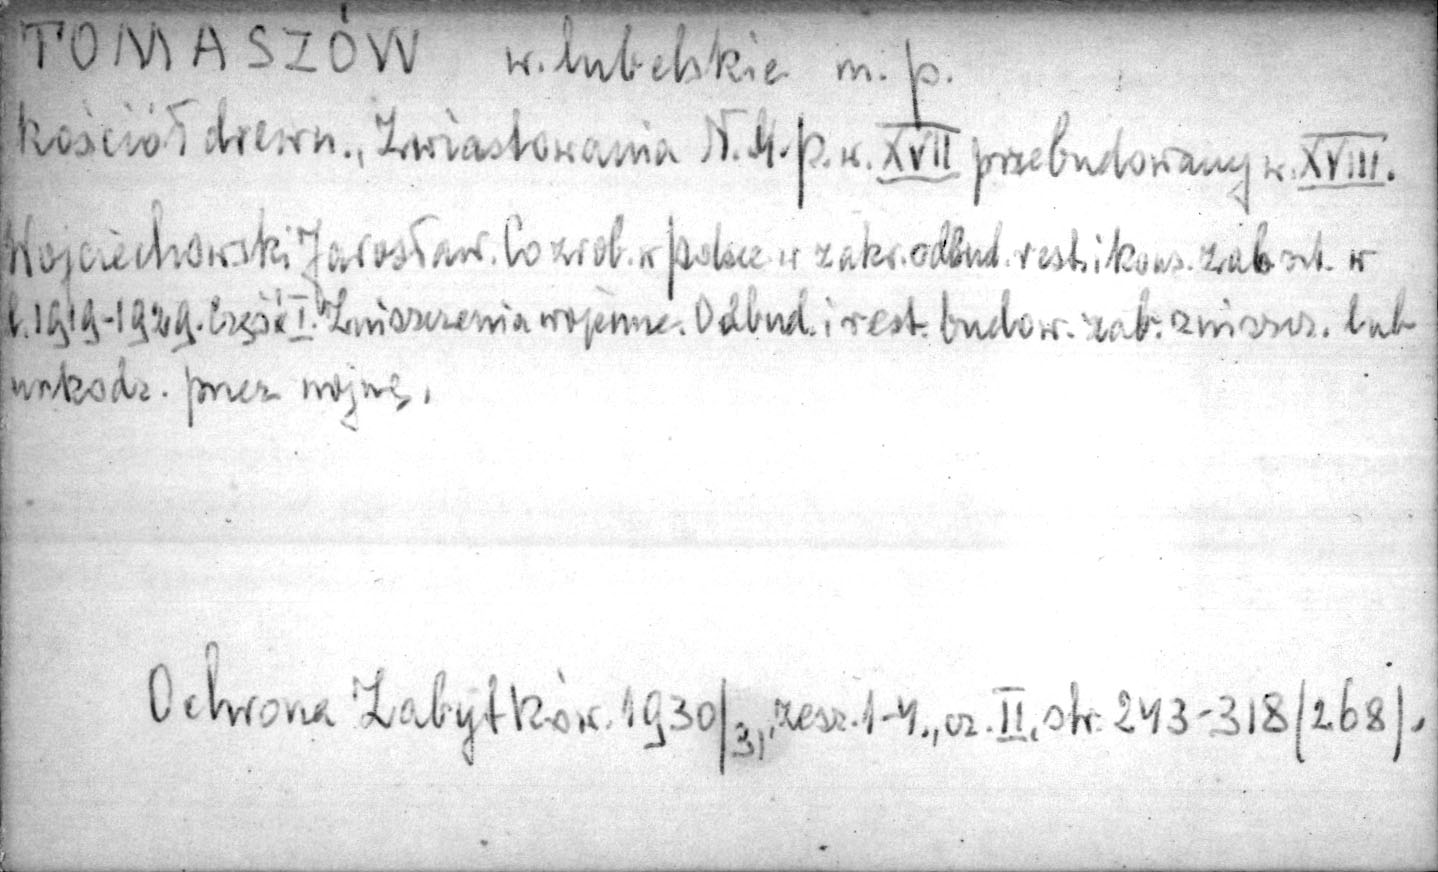 TOMASZÓW w. lubelskie m. p.
Kościół drewn., Zwiastowania N.M.P. w. XVII przebudowany w. XVIII.
Wojciechowski Jarosław. Co zrob. w Polsce w zakr. odbud. rest. i kons. zab. szt. w
l. 1919-1929. Część I. Zniszczenia wojenne. Odbud. i rest. budow. zab. zniszcz. lub
uszkodz. przez wojnę.
Ochrona Zabytków. 1930/31, zesz. 1-4., cz. II, str. 243-318 (268).